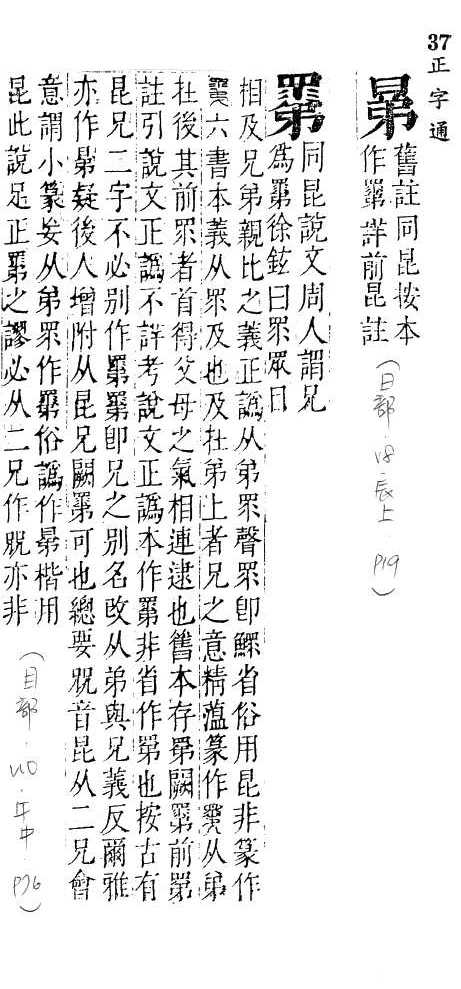 37 正字通
晜
舊註同昆按本
作詳前昆註
(日部·18·辰上 P19)
同昆說文周人謂兄
為徐鉉曰眔眾目
相及兄弟親比之義正譌从弟眔聲眔即鰥省俗用昆非篆作
六書本義从眔及也及在弟上者兄之意精薀篆作从弟
在後其前眔者首得父母之氣相連逮也舊本存闕前
註引說文正譌不詳考說文正譌本作非省作也按古有
昆兄二字不必別作即兄之別名改从弟與兄義反爾雅
亦作晜疑後人增附从昆兄闕可也總要音昆从二兄會
意謂小篆妄从弟眔作俗譌作晜楷用
昆此說足正之謬必从二兄作亦非
(目部 午中 P76)